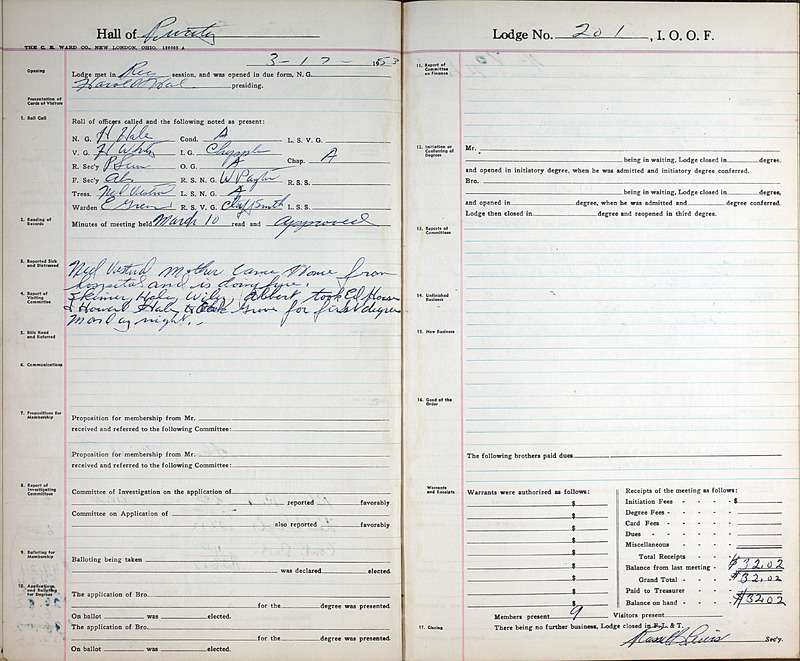 Hall of Purity
THE C. E. WARD CO., NEW LONDON, OHIO.
3-17-1953
Opening
Lodge met in Reg session, and was opened in due form, N. G.
Harold Hale presiding.
Presentation of Cards of Visitors
1. Roll Call
Roll of officers called and the following noted as present:
N. G. H Hale Cond. A L. S. V. G.
V. G. H White I. G. Chap. A
R. Sec'y O. G. A
F. Sec'y Ab R. S. N. G. W Paylor R. S. S.
Treas. L. S. N. G. A L. S. S.
Warden R. S. V. G. Smith
2. Reading of Records
Minutes of meeting held March 10 read and approved
3. Reported Sick and Distressed
Mother came Home from
hospital and is doing fine.
4. Report of Visiting Committee
Skimer, Haley, Wiley, Albert took Ed
& Howard Hale to Oak Grove for first degree
Monday night.
5. Bills Read and Referred
6. Communications
7. Propositions for Membership
Proposition for membership from Mr.
received and referred to the following Committee:
Proposition for membership from Mr.
received and referred to the following Committee:
8. Report of Investigating Committees
Committee of Investigation on the application of
reported favorably
Committee on Application of
also reported favorably
9. Balloting for Membership
Balloting being taken
was declared elected.
10. Applications and Balloting for Degrees
The application of Bro.
for the degree was presented.
On ballot was elected.
The application of Bro.
for the degree was presented.
On ballot was elected.
Lodge No. 201, I. O. O. F.
11. Report of Committee on Finance
12. Initiation or Conferring of Degrees
Mr.
being in waiting, Lodge closed in degree,
and opened in initiatory degree, when he was admitted and initiatory degree conferred.
Bro.
being in waiting, Lodge closed in degree,
and opened in degree, when he was admitted and degree conferred.
Lodge then closed in degree and reopened in third degree.
13. Reports of Committees
14. Unfinished Business
15. New Business
16. Good of the Order
The following brothers paid dues
Warrants and Receipts
Warrants were authorized as follows:
$
$
$
$
$
$
$
$
$
Receipts of the meeting as follows:
Initiation Fees $
Degree Fees
Card Fees
Dues
Miscellaneous
Total Receipts
Balance from last meeting $32.02
Grand Total $32.02
Paid to Treasurer
Balance on hand $32.02
Members present 9 Visitors present
17. Closing
There being no further business, Lodge closed in F. L. & T.
Sec'y.